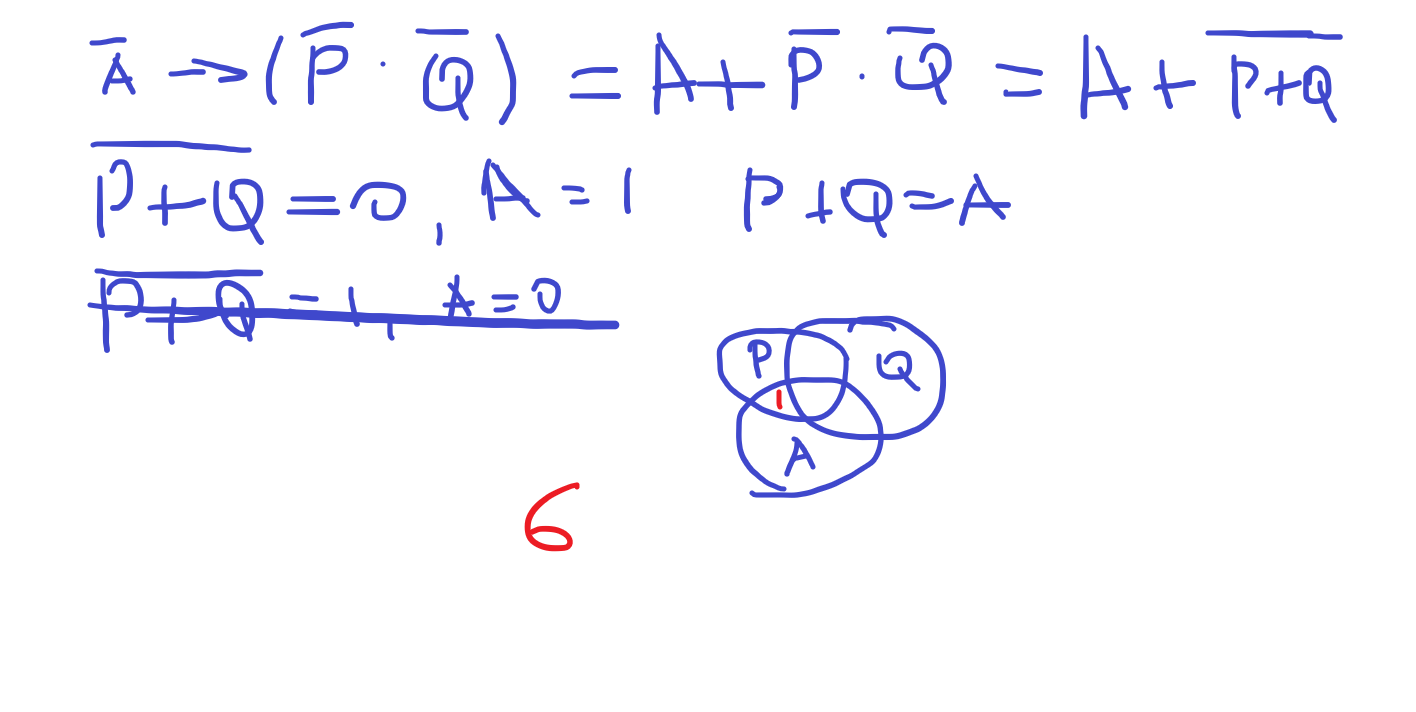 A̅ → (P̅ · Q̅) = A + P̅ · Q̅ = A + P̅+̅Q̅
P̅+̅Q̅ = 0, A = 1 P + Q = A
P̅+̅Q̅ = 1, A = 0
P Q
1
A
6